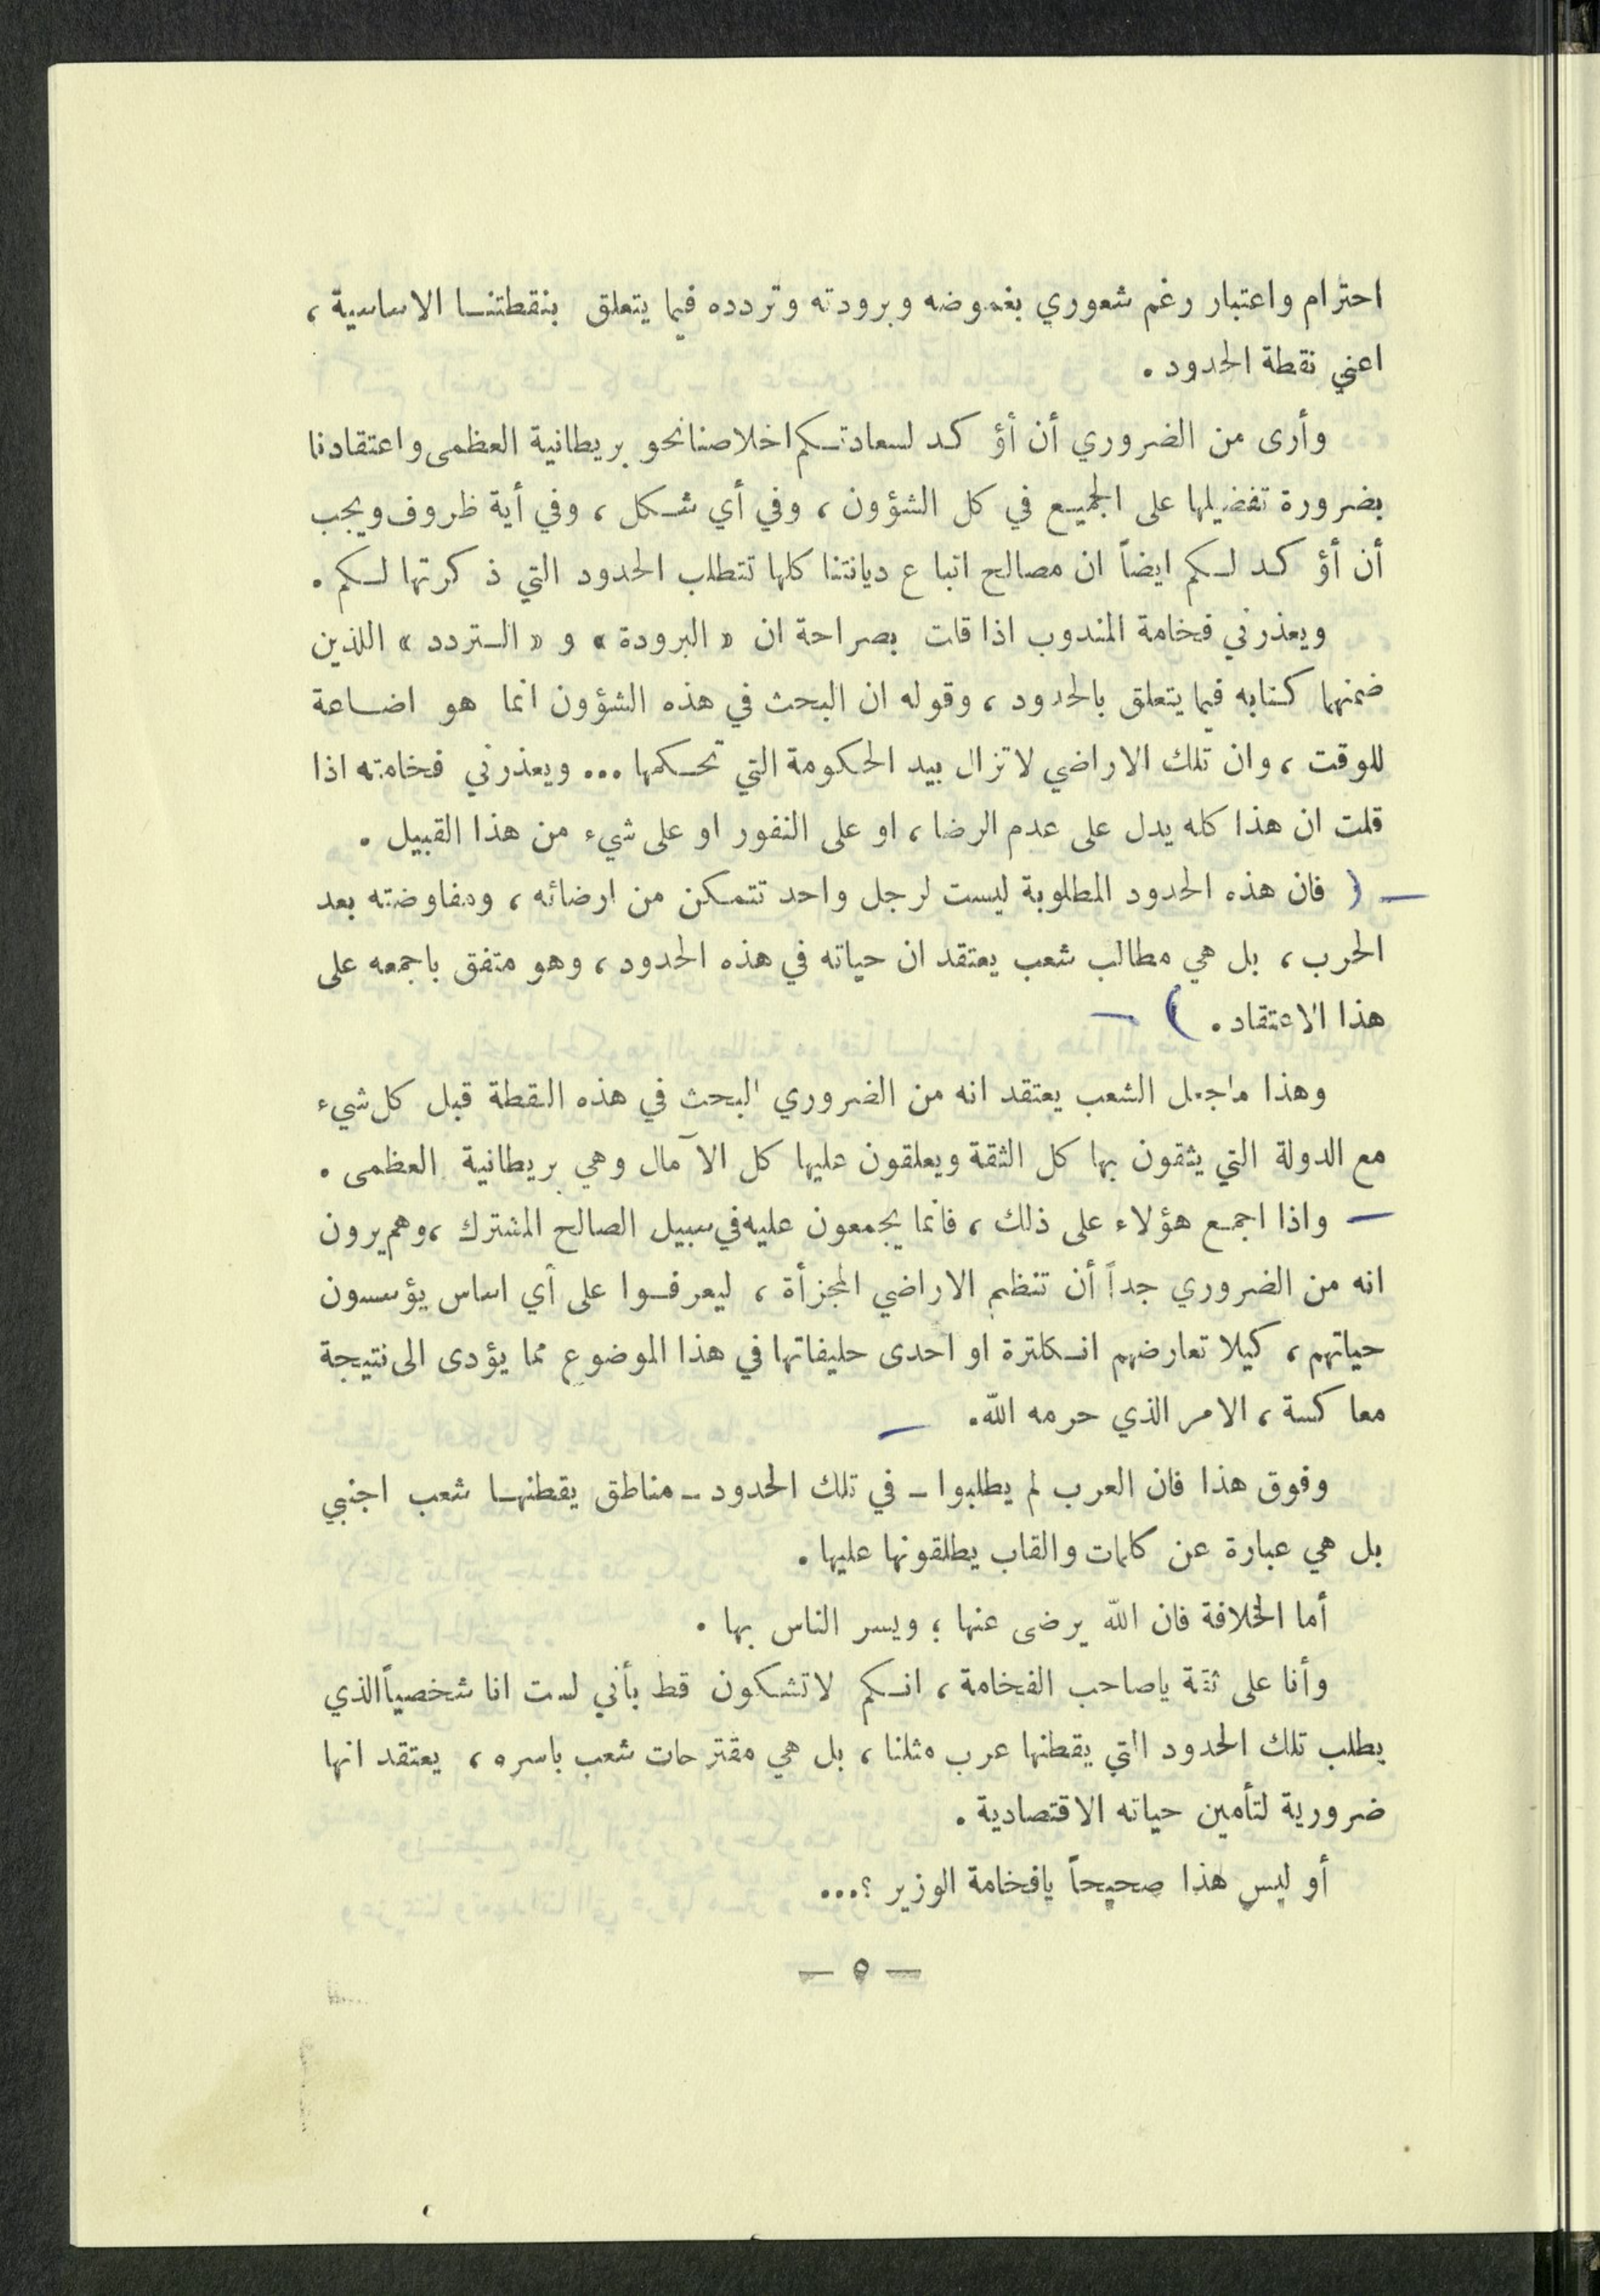 احترام واعتبار رغم شعوري بغموضه وبرودته وتردده فيما يتعلق بنقطتنا الاساسية ،
اعني نقطة الحدود .
وأرى من الضروري أن أؤكد لسعادتكم اخلاصنا نحو بريطانية العظمى واعتقادنا
بضرورة تفضيلها على الجميع في كل الشؤون ، وفي أي شكل ، وفي أية ظروف ويجب
أن أؤكد لكم ايضاً ان مصالح اتباع ديانتنا كلها تتطلب الحدود التي ذكرتها لكم .
ويعذرني فخامة المندوب اذا قلت بصراحة ان « البرودة » و « التردد » اللذين
ضمنهما كتابه فيما يتعلق بالحدود ، وقوله ان البحث في هذه الشؤون انما هو اضاعة
للوقت ، وان تلك الاراضي لا تزال بيد الحكومة التي تحكمها ... ويعذرني فخامته اذا
قلت ان هذا كله يدل على عدم الرضا ، او على النفور او على شيء من هذا القبيل .
— ( فان هذه الحدود المطلوبة ليست لرجل واحد تتمكن من ارضائه ، ومفاوضته بعد
الحرب ، بل هي مطالب شعب يعتقد ان حياته في هذه الحدود ، وهو متفق باجمعه على
هذا الاعتقاد . ) —
وهذا ماجعل الشعب يعتقد انه من الضروري البحث في هذه النقطة قبل كل شيء
مع الدولة التي يثقون بها كل الثقة ويعلقون عليها كل الآمال وهي بريطانية العظمى .
— واذا اجمع هؤلاء على ذلك ، فانما يجمعون عليه في سبيل الصالح المشترك ، وهم يرون
انه من الضروري جداً أن تنظم الاراضي المجزأة ، ليعرفوا على أي اساس يؤسسون
حياتهم ، كيلا تعارضهم انكلترة او احدى حليفاتها في هذا الموضوع مما يؤدى الى نتيجة
معاكسة ، الامر الذي حرمه الله. —
وفوق هذا فان العرب لم يطلبوا - في تلك الحدود - مناطق يقطنها شعب اجنبي
بل هي عبارة عن كلمات والقاب يطلقونها عليها .
أما الخلافة فان الله يرضى عنها ؛ ويسر الناس بها .
وأنا على ثقة ياصاحب الفخامة ، انكم لاتشكون قط بأني لست انا شخصياً الذي
يطلب تلك الحدود التي يقطنها عرب مثلنا ، بل هي مقترحات شعب باسره ، يعتقد انها
ضرورية لتأمين حياته الاقتصادية .
أو ليس هذا صحيحاً يافخامة الوزير ؟...
— ٥ —